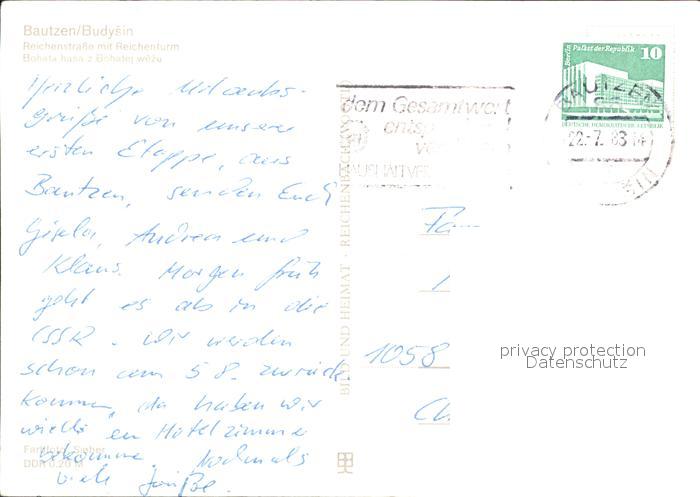 Bautzen/Budyšin
Reichenstraße mit Reichenturm
Bohata hasa z Bohatej wěžu
Herzliche Urlaubs-
grüße von unserer
ersten Etappe, aus
Bautzen, senden Euch
Gisela, Andrea und
Klaus. Morgen früh
geht es ab in die
CSSR. Wir werden
schon am 5.8. zurück
kommen, da haben wir
ein Hotelzimmer
bekommen. Nochmals
viele Grüße.
Farbfoto:
DDR 0,20 M
BILD UND HEIMAT · REICHENBACH
dem Gesamtwort
BAUTZEN
22.-7. 83
Berlin Palast der Republik 10
DEUTSCHE DEMOKRATISCHE REPUBLIK
Fa
1058
privacy protection
Datenschutz